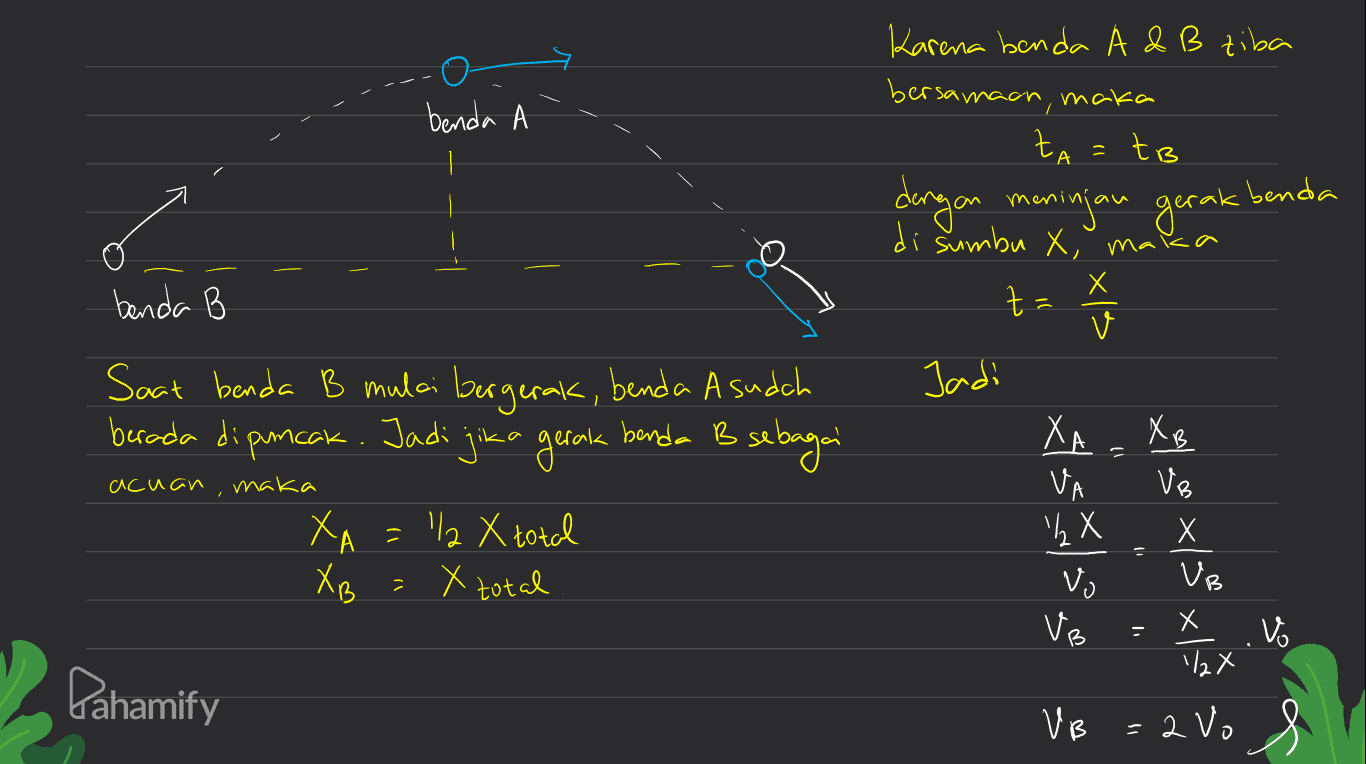 benda A
benda B
Saat benda B mulai bergerak, benda A sudah
berada dipuncak. Jadi jika gerak benda B sebagai
acuan, maka
X_A = 1/2 X total
X_B = X total
Karena benda A & B tiba
bersamaan, maka
t_A = t_B
dengan meninjau gerak benda
di sumbu X, maka
t = X/V
Jadi
X_A/V_A = X_B/V_B
1/2 X/V_0 = X/V_B
V_B = X/(1/2 X) . V_0
V_B = 2 V_0
Pahamify